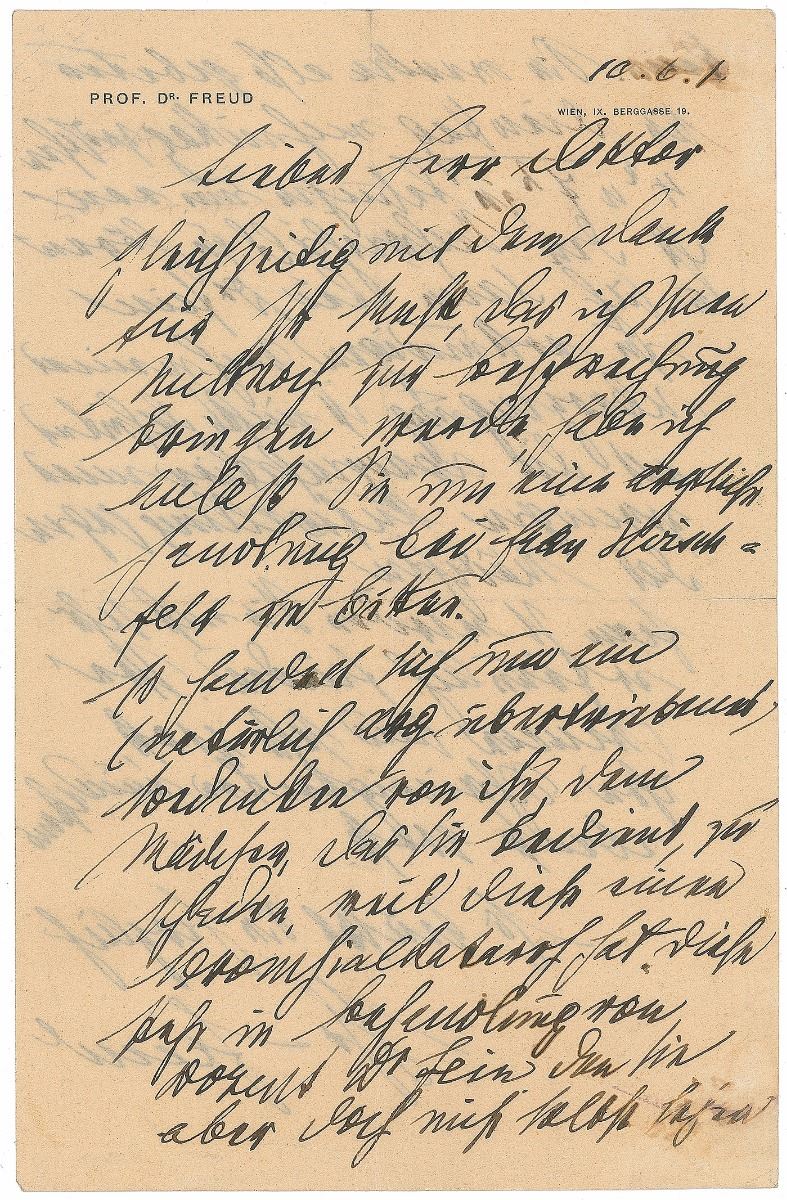 10.6.1
PROF. DR. FREUD
WIEN, IX. BERGGASSE 19.
Lieber Herr Doktor
Gleichzeitig mit dem Dank
für Ihr das ich Ihnen
Mittwoch zur Besprechung
bringen werde, habe ich
Anlaß Sie um eine ärztliche
Handlung bei Frau Hirsch=
feld zu bitten.
Es handelt sich um ein
(natürlich arg übertriebenes)
Bedenken von ihr, dem
Mädchen, das sie bedient, zu
schaden, weil diese einen
Bronchialkatarrh hat. Diese
steht in Behandlung von
Dozent Dr Fein den sie
aber doch nicht selbst